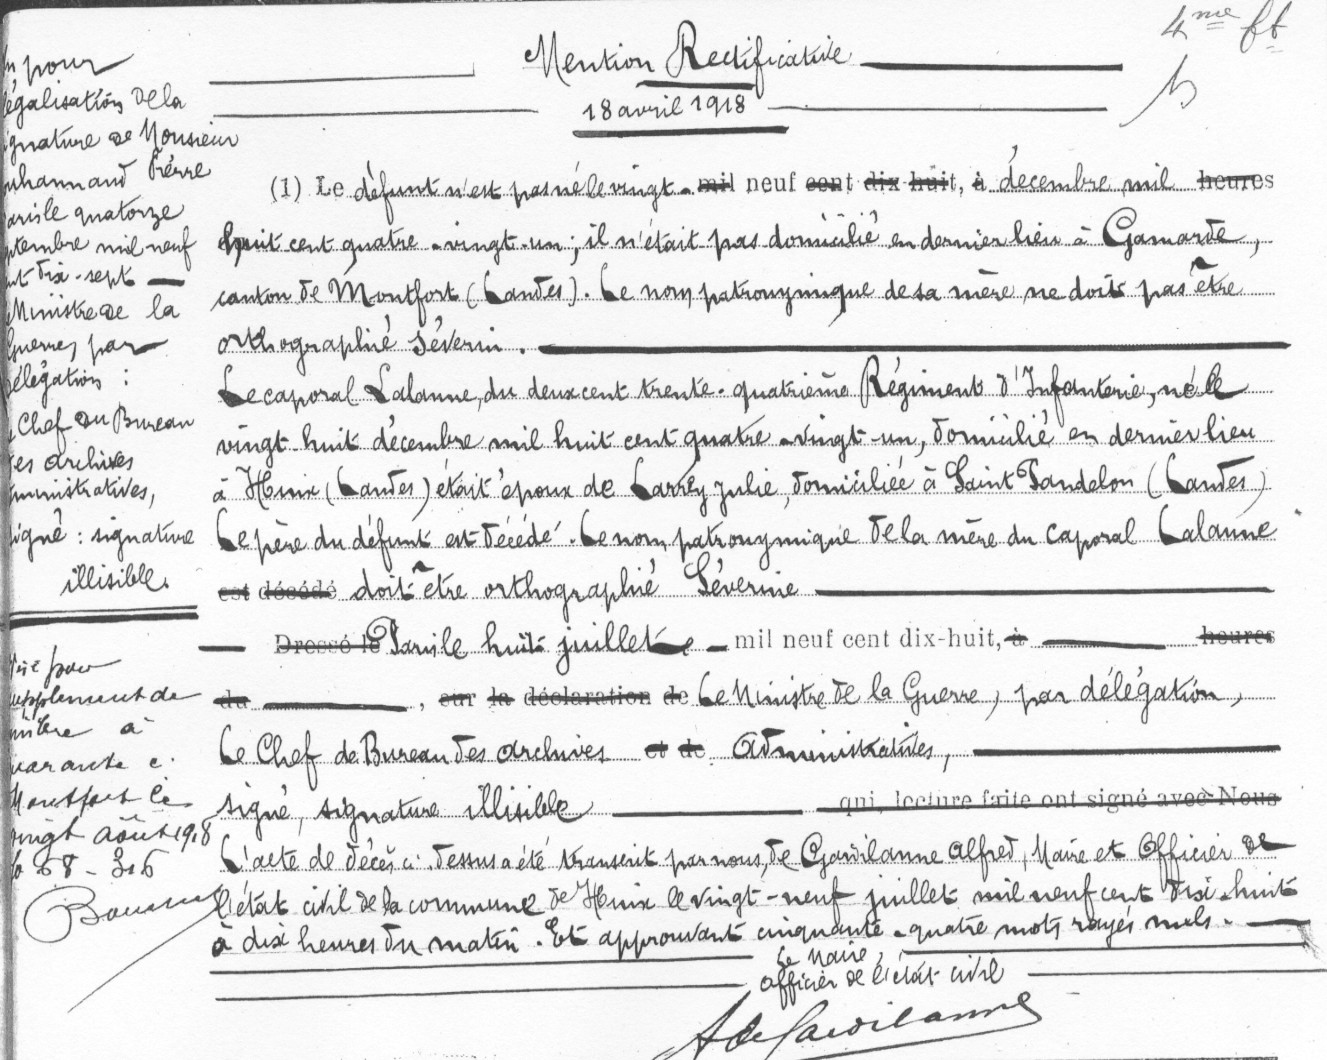 4me ft
Mention Rectificative
18 avril 1918
(1) Le défunt n'est pas né le vingt - mil neuf cent dix huit, à décembre mil heures
huit cent quatre-vingt-un ; il n'était pas domicilié en dernier lieu à Gamarde,
canton de Montfort (Landes). Le nom patronymique de sa mère ne doit pas être
orthographié Séverin.
Le caporal Lalanne, du deux cent trente-quatrième Régiment d'Infanterie, né le
vingt huit décembre mil huit cent quatre-vingt-un, domicilié en dernier lieu
à Hinx (Landes) était époux de Larrey Julie, domiciliée à Saint Pandelon (Landes)
Le père du défunt est décédé. Le nom patronymique de la mère du caporal Lalanne
est décédé doit être orthographié Séverine
Dressé le Paris le huit juillet mil neuf cent dix-huit, à heures
du , sur la déclaration de Le Ministre de la Guerre, par délégation,
Le Chef de Bureau des archives et de Administratives,
signé, signature illisible qui, lecture faite ont signé avec Nous
L'acte de décès ci-dessus a été transcrit par nous, de Gavilanne Alfred, Maire et Officier de
l'état civil de la commune de Hinx le vingt-neuf juillet mil neuf cent dix-huit
à dix heures du matin. Et approuvant cinquante-quatre mots rayés nuls.
Le Maire,
officier de l'état civil
pour
égalisation de la
gnature de Monsieur
Pierre
aris le quatorze
ptembre mil neuf
nt dix-sept
Ministre de la
Guerre, par
élégation :
Chef du Bureau
es archives
ministratives,
igné : signature
illisible.
isé pour
upplément de
imbre à
uarante c.
Montfort le
vingt août 1918